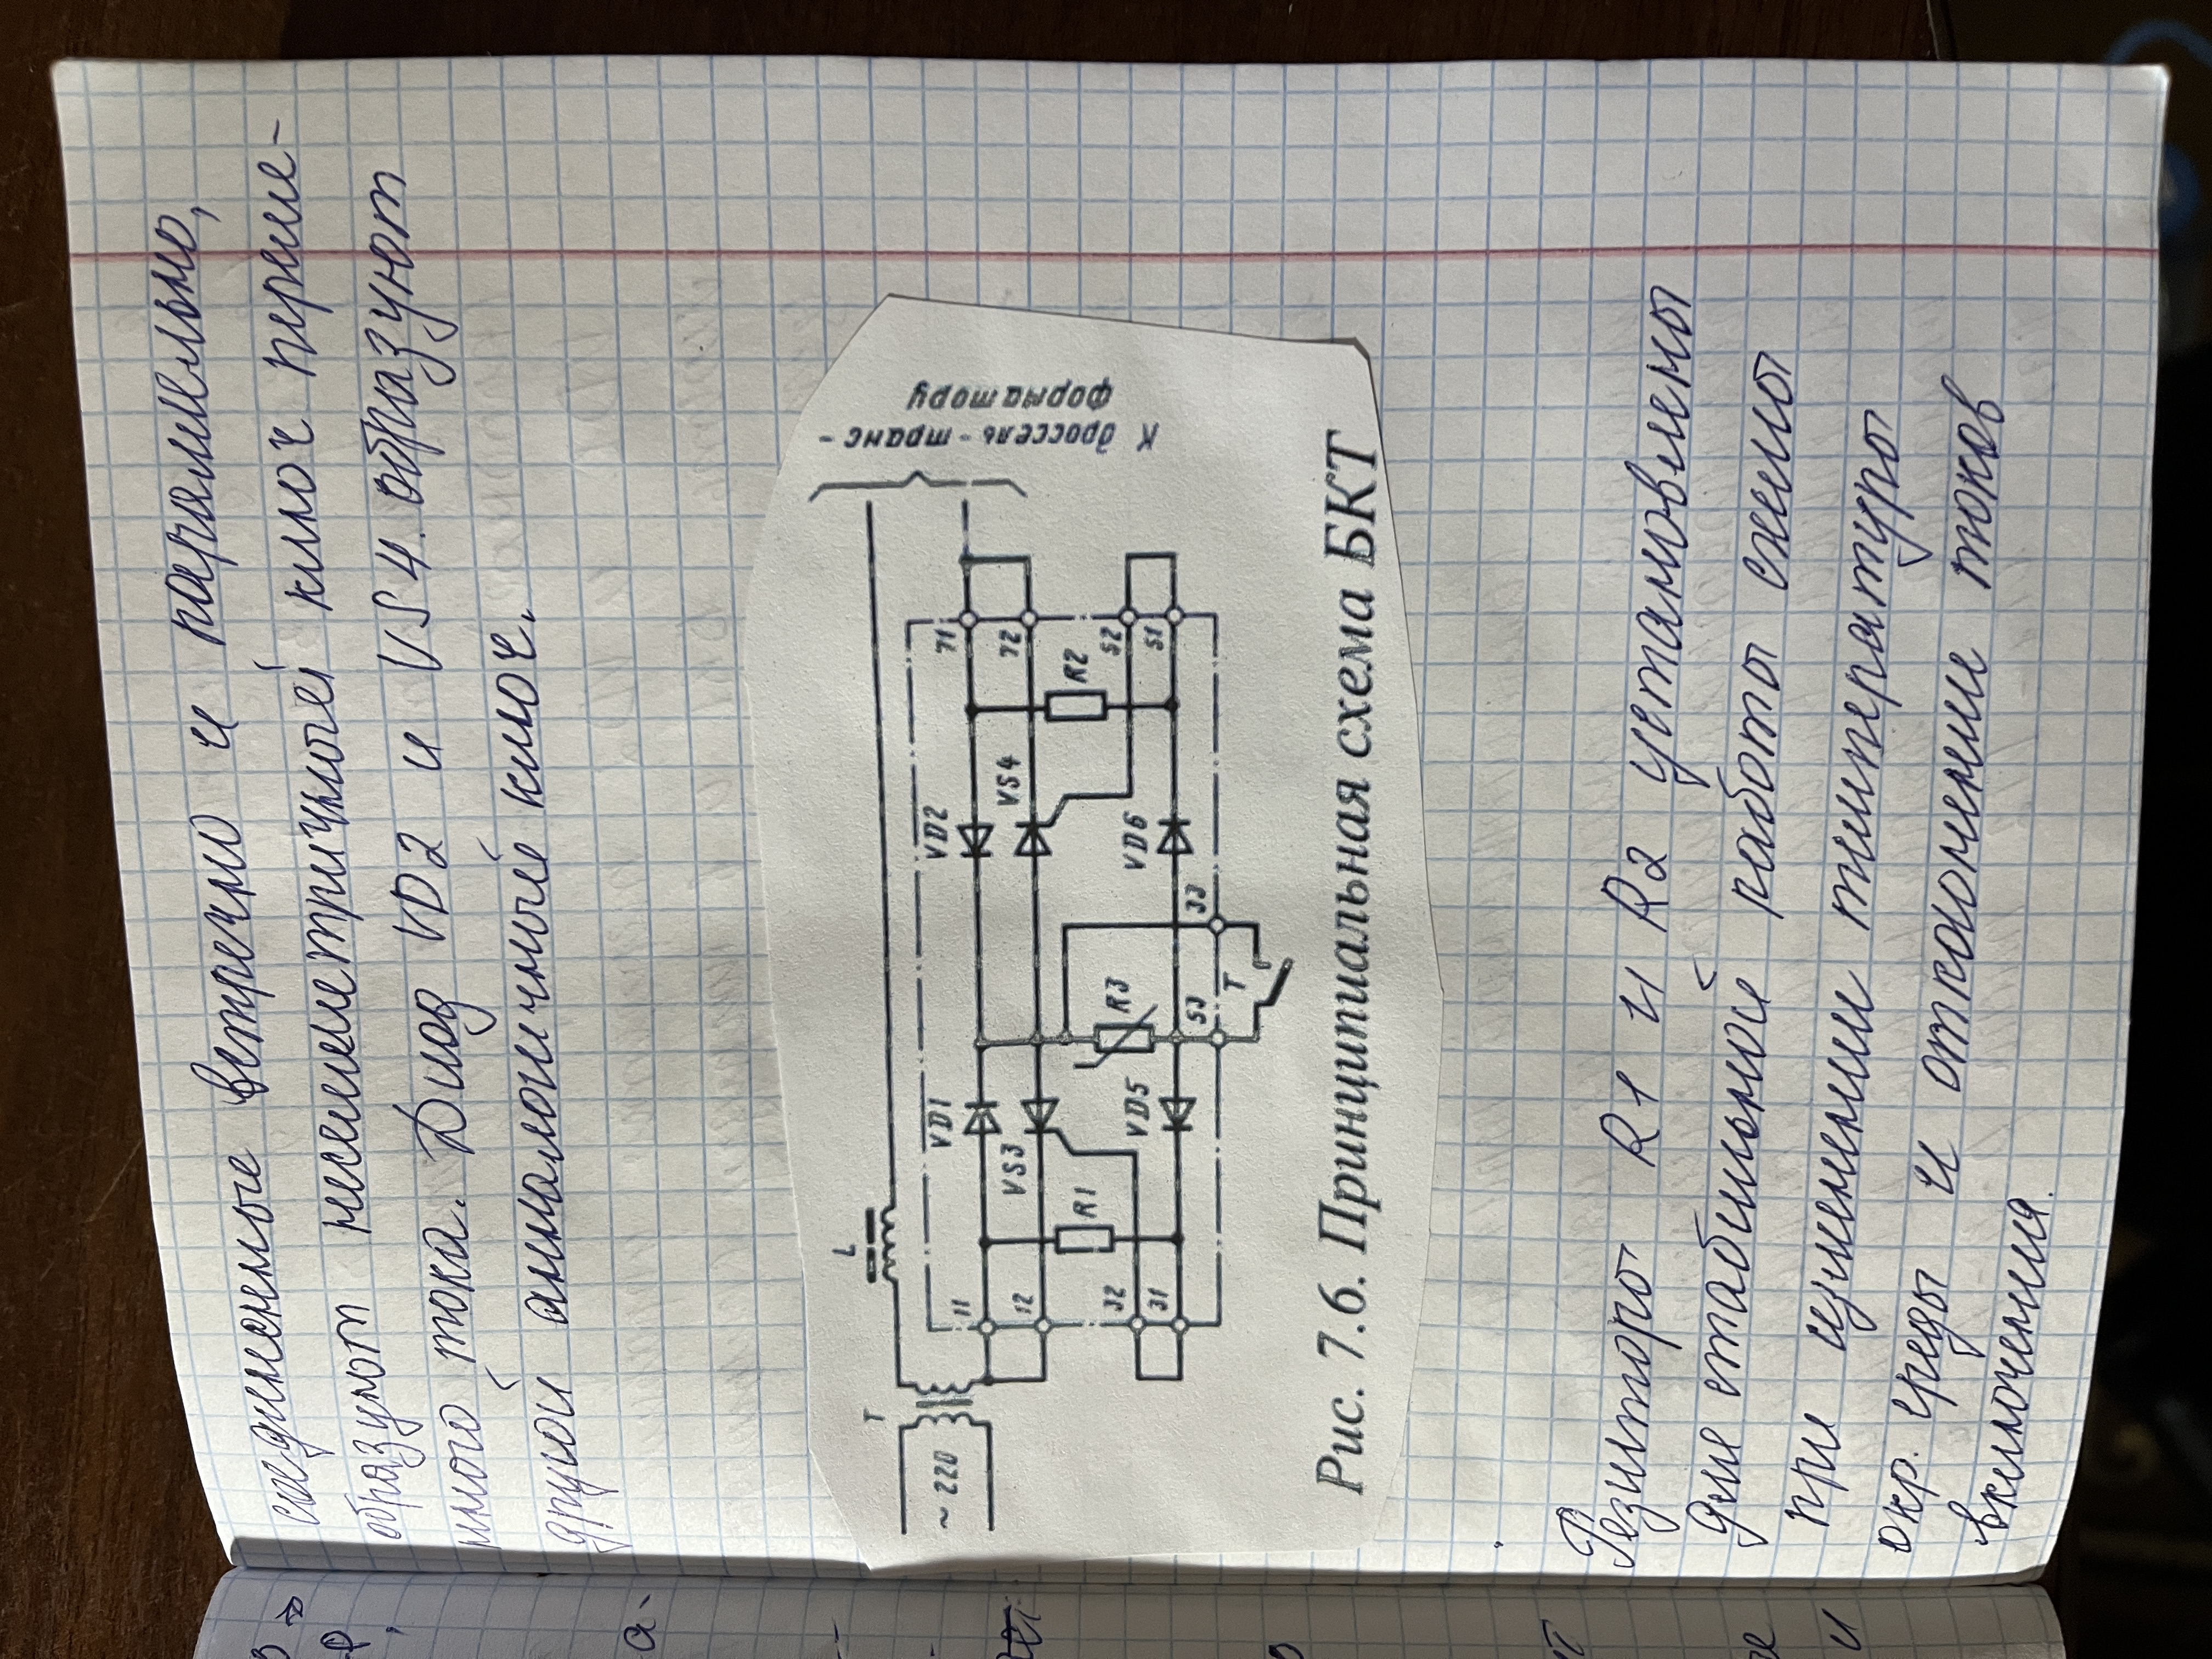 соединенные встречно и параллельно,
образуют несимметричный ключ переме-
нного тока. Диод VD2 и VS4 образуют
другой аналогичный ключ.
К дроссель-транс-
форматору
L
T
~ 220
11
VD1
VD2
71
12
VS3
VS4
72
R1
R3
R2
32
VD5
VD6
52
31
53
33
51
T
Рис. 7.6. Принципиальная схема БКТ
Резисторы R1 и R2 установлены
для стабильной работы схемы
при изменении температуры
окр. среды и отклонении токов
включения.